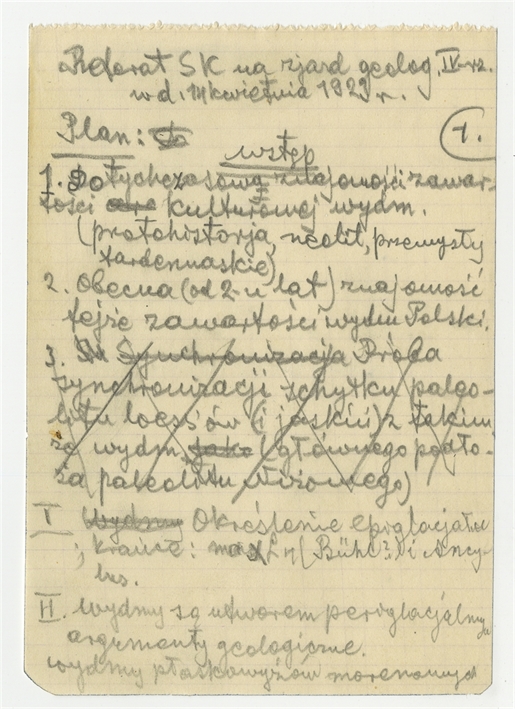 Referat SK na zjazd geolog. IV-rz.
w d. kwietnia 1929 r.
Plan:
1.
wstęp
1. Dotychczasowa znajomość zawar-
tości kulturowej wydm.
(protohistorja, neolit, przemysły
tardenuaskie)
2. Obecna (od 2-u lat) znajomość
tejże zawartości wydm Polski.
3. Synchronizacja Próba
synchronizacji schyłku paleo-
litu loess'ów (i jaskiń) z takim
że wydm, jako (głównego podło-
ża paleolitu niżowego)
I Wydmy Określenie
; krańce: max L4 (Bühl? i Ancy-
lus.
II. Wydmy są utworem peryglacjalnym
argumenty geologiczne.
wydmy płaskowyżów morenowych